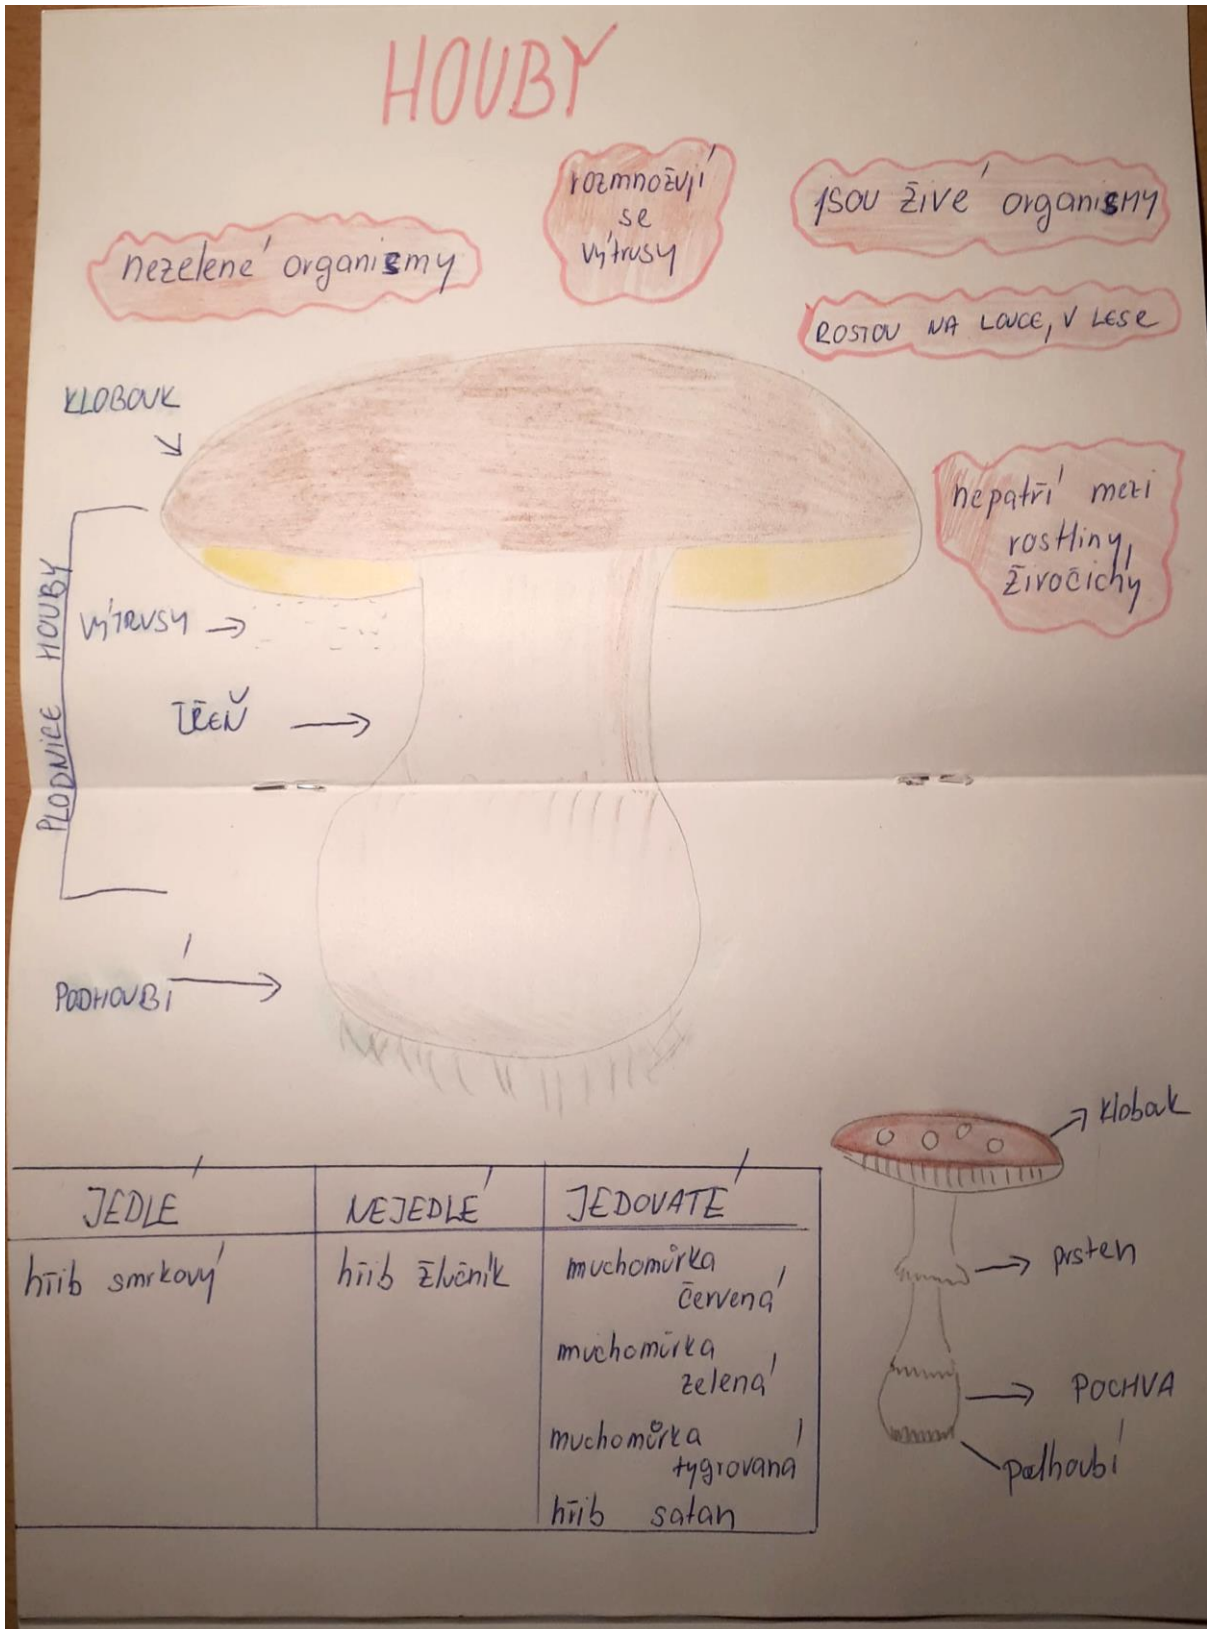 HOUBY
rozmnožují
se
výtrusy
jsou živé organismy
nezelené organismy
ROSTOU NA LOUCE, V LESE
KLOBOUK
nepatří mezi
rostliny,
živočichy
PLODNICE HOUBY
VÝTRUSY
TŘEŇ
PODHOUBÍ
klobouk
prsten
POCHVA
podhoubí
JEDLÉ
NEJEDLÉ
JEDOVATÉ
hřib smrkový
hřib žlučník
muchomůrka
červená
muchomůrka
zelená
muchomůrka
tygrovaná
hřib satan